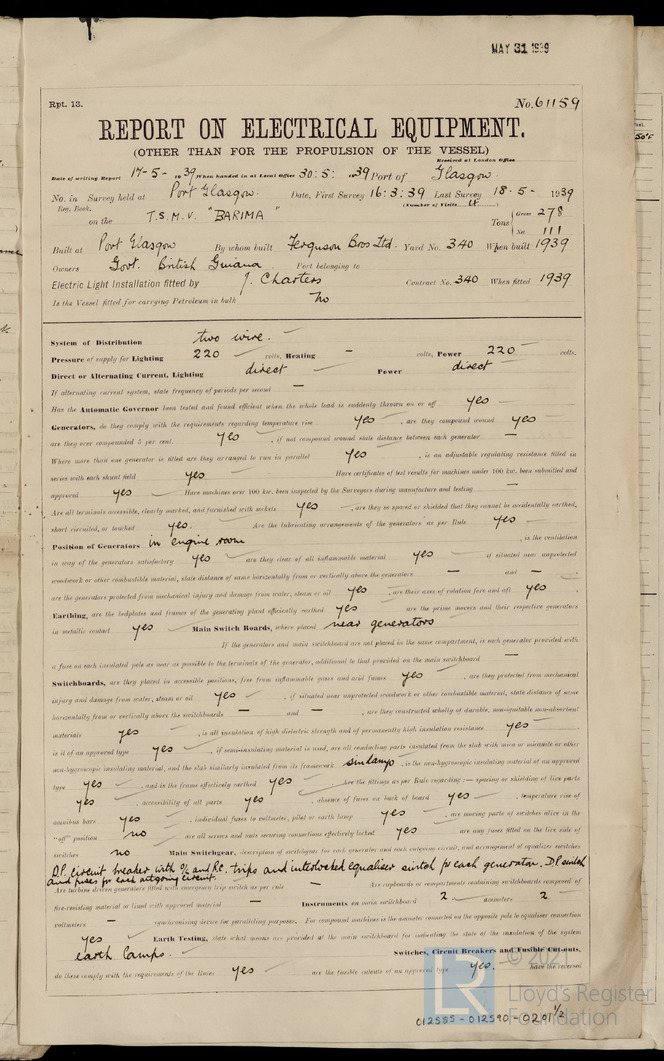 MAY 31 1939
Rpt. 13. No. 61159
REPORT ON ELECTRICAL EQUIPMENT.
(OTHER THAN FOR THE PROPULSION OF THE VESSEL)
Received at London Office
Date of writing Report 17-5-1939 When handed in at Local Office 30:5:1939 Port of Glasgow.
No. in Survey held at Port Glasgow. Date, First Survey 16:3:39 Last Survey 18-5-1939
Reg. Book. (Number of Visits
on the T.S.M.V. "BARIMA" Tons { Gross 278
Net 111
Built at Port Glasgow By whom built Ferguson Bros Ltd. Yard No. 340 When built 1939
Owners Govt. British Guiana Port belonging to
Electric Light Installation fitted by J. Charters Contract No. 340 When fitted 1939
Is the Vessel fitted for carrying Petroleum in bulk No
System of Distribution two wire.
Pressure of supply for Lighting 220 volts, Heating - volts, Power 220 volts.
Direct or Alternating Current, Lighting direct Power direct
If alternating current system, state frequency of periods per second -
Has the Automatic Governor been tested and found efficient when the whole load is suddenly thrown on or off yes
Generators, do they comply with the requirements regarding temperature rise yes, are they compound wound yes
are they over compounded 5 per cent. yes, if not compound wound state distance between each generator -
Where more than one generator is fitted are they arranged to run in parallel yes, is an adjustable regulating resistance fitted in
series with each shunt field yes Have certificates of test results for machines under 100 kw. been submitted and
approved yes Have machines over 100 kw. been inspected by the Surveyors during manufacture and testing -
Are all terminals accessible, clearly marked, and furnished with sockets yes, are they so spaced or shielded that they cannot be accidentally earthed,
short circuited, or touched yes. Are the lubricating arrangements of the generators as per Rule yes
Position of Generators in engine room, is the ventilation
in way of the generators satisfactory yes are they clear of all inflammable material yes if situated near unprotected
woodwork or other combustible material, state distance of same horizontally from or vertically above the generators - and -
are the generators protected from mechanical injury and damage from water, steam or oil yes, are their axes of rotation fore and aft yes
Earthing, are the bedplates and frames of the generating plant efficiently earthed yes are the prime movers and their respective generators
in metallic contact yes Main Switch Boards, where placed near generators
If the generators and main switchboard are not placed in the same compartment, is each generator provided with
a fuse on each insulated pole as near as possible to the terminals of the generator, additional to that provided on the main switchboard -
Switchboards, are they placed in accessible positions, free from inflammable gases and acid fumes yes, are they protected from mechanical
injury and damage from water, steam or oil yes, if situated near unprotected woodwork or other combustible material, state distance of same
horizontally from or vertically above the switchboards - and -, are they constructed wholly of durable, non-ignitable non-absorbent
materials yes, is all insulation of high dielectric strength and of permanently high insulation resistance yes
is it of an approved type yes, if semi-insulating material is used, are all conducting parts insulated from the slab with mica or micanite or other
non-hygroscopic insulating material, and the slab similarly insulated from its framework sindanyo, is the non-hygroscopic insulating material of an approved
type yes, and is the frame effectively earthed yes Are the fittings as per Rule regarding:- spacing or shielding of live parts
yes, accessibility of all parts yes, absence of fuses on back of board yes, temperature rise of
omnibus bars yes, individual fuses to voltmeter, pilot or earth lamp yes, are moving parts of switches alive in the
"off" position no are all screws and nuts securing connections effectively locked yes are any fuses fitted on the live side of
switches no Main Switchgear, description of switchgear for each generator and each outgoing circuit, and arrangement of equaliser switches
D.P. circuit breaker with O/L and R.C. trips and interlocked equaliser switch for each generator. D.P. switch
and fuses for each outgoing circuit.
Are turbine driven generators fitted with emergency trip switch as per rule - Are cupboards or compartments containing switchboards composed of
fire-resisting material or lined with approved material - Instruments on main switchboard 2 ammeters 2
voltmeters - synchronising device for paralleling purposes. For compound machines is the ammeter connected on the opposite pole to equaliser connection
yes Earth Testing, state what means are provided at the main switchboard for indicating the state of the insulation of the system
earth lamps. Switches, Circuit Breakers and Fusible Cut-outs,
do these comply with the requirements of the Rules yes are the fusible cutouts of an approved type yes. have the reversed
© 2021
Lloyd's Register
Foundation
012585-012590-0201 1/2